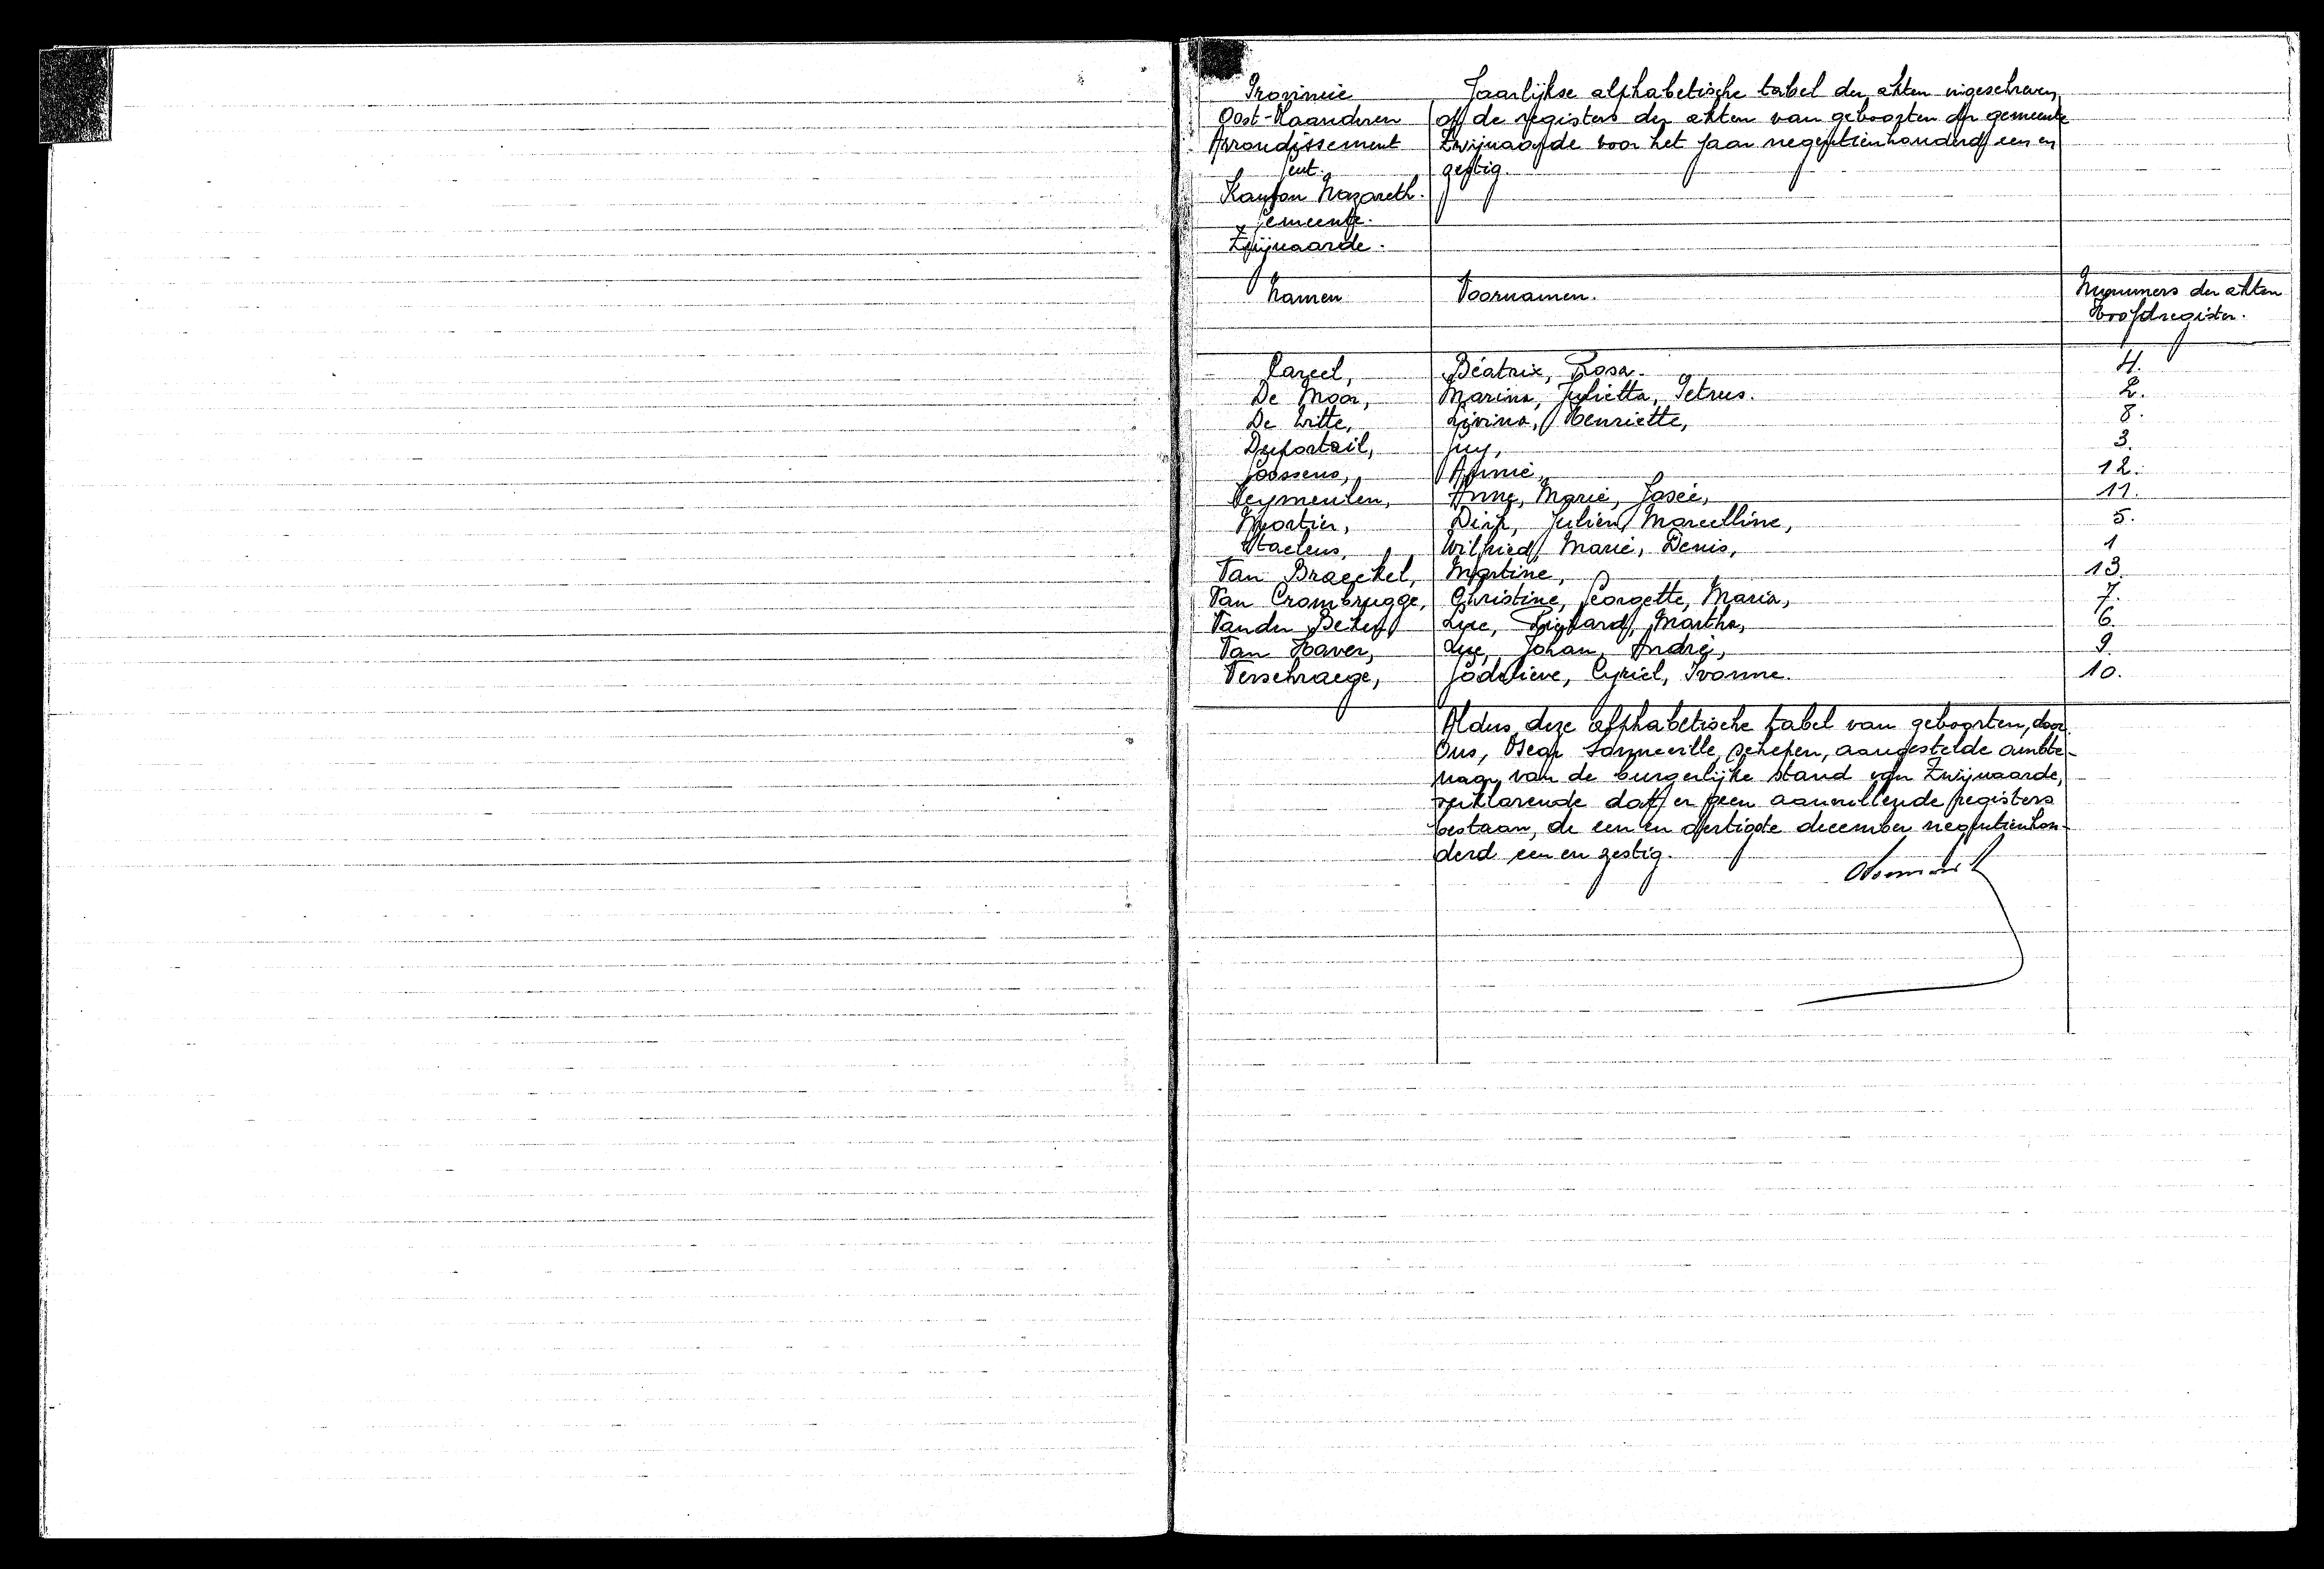 Provincie
Oost-Vlaanderen
Arrondissement
Gent.
Kanton Nazareth.
Gemeente.
Zwijnaarde.
Jaarlijkse alphabetische tabel der akten ingeschreven
op de registers der akten van geboorten der gemeente
Zwijnaarde voor het jaar negentienhonderd een en
zestig.
Namen Voornamen. Nummers der akten
Hoofdregister.
Carcel, Béatrix, Rosa. 4.
De Moor, Marina, Julietta, Petrus. 2.
De Witte, Livina, Henriette, 8.
Duportail, Guy, 3.
Goossens, Annie, 12.
Leymeulen, Anne, Marie, Josée, 11.
Mortier, Dirk, Julien, Marcelline, 5.
Staelens, Wilfried, Marie, Denis, 1
Van Braeckel, Martine, 13.
Van Crombrugge, Christine, Georgette, Maria, 7.
Vander Beken, Luc, Richard, Martha, 6.
Van Haver, Luc, Johan, André, 9.
Verschraege, Godelieve, Cyriel, Ivonne. 10.
Aldus deze alphabetische tabel van geboorten, door
Ons, Oscar Sonneville, schepen, aangestelde ambte-
naar van de burgerlijke stand van Zwijnaarde,
verklarende dat er geen aanvullende registers
bestaan, de een en dertigste december negentienhon-
derd een en zestig.